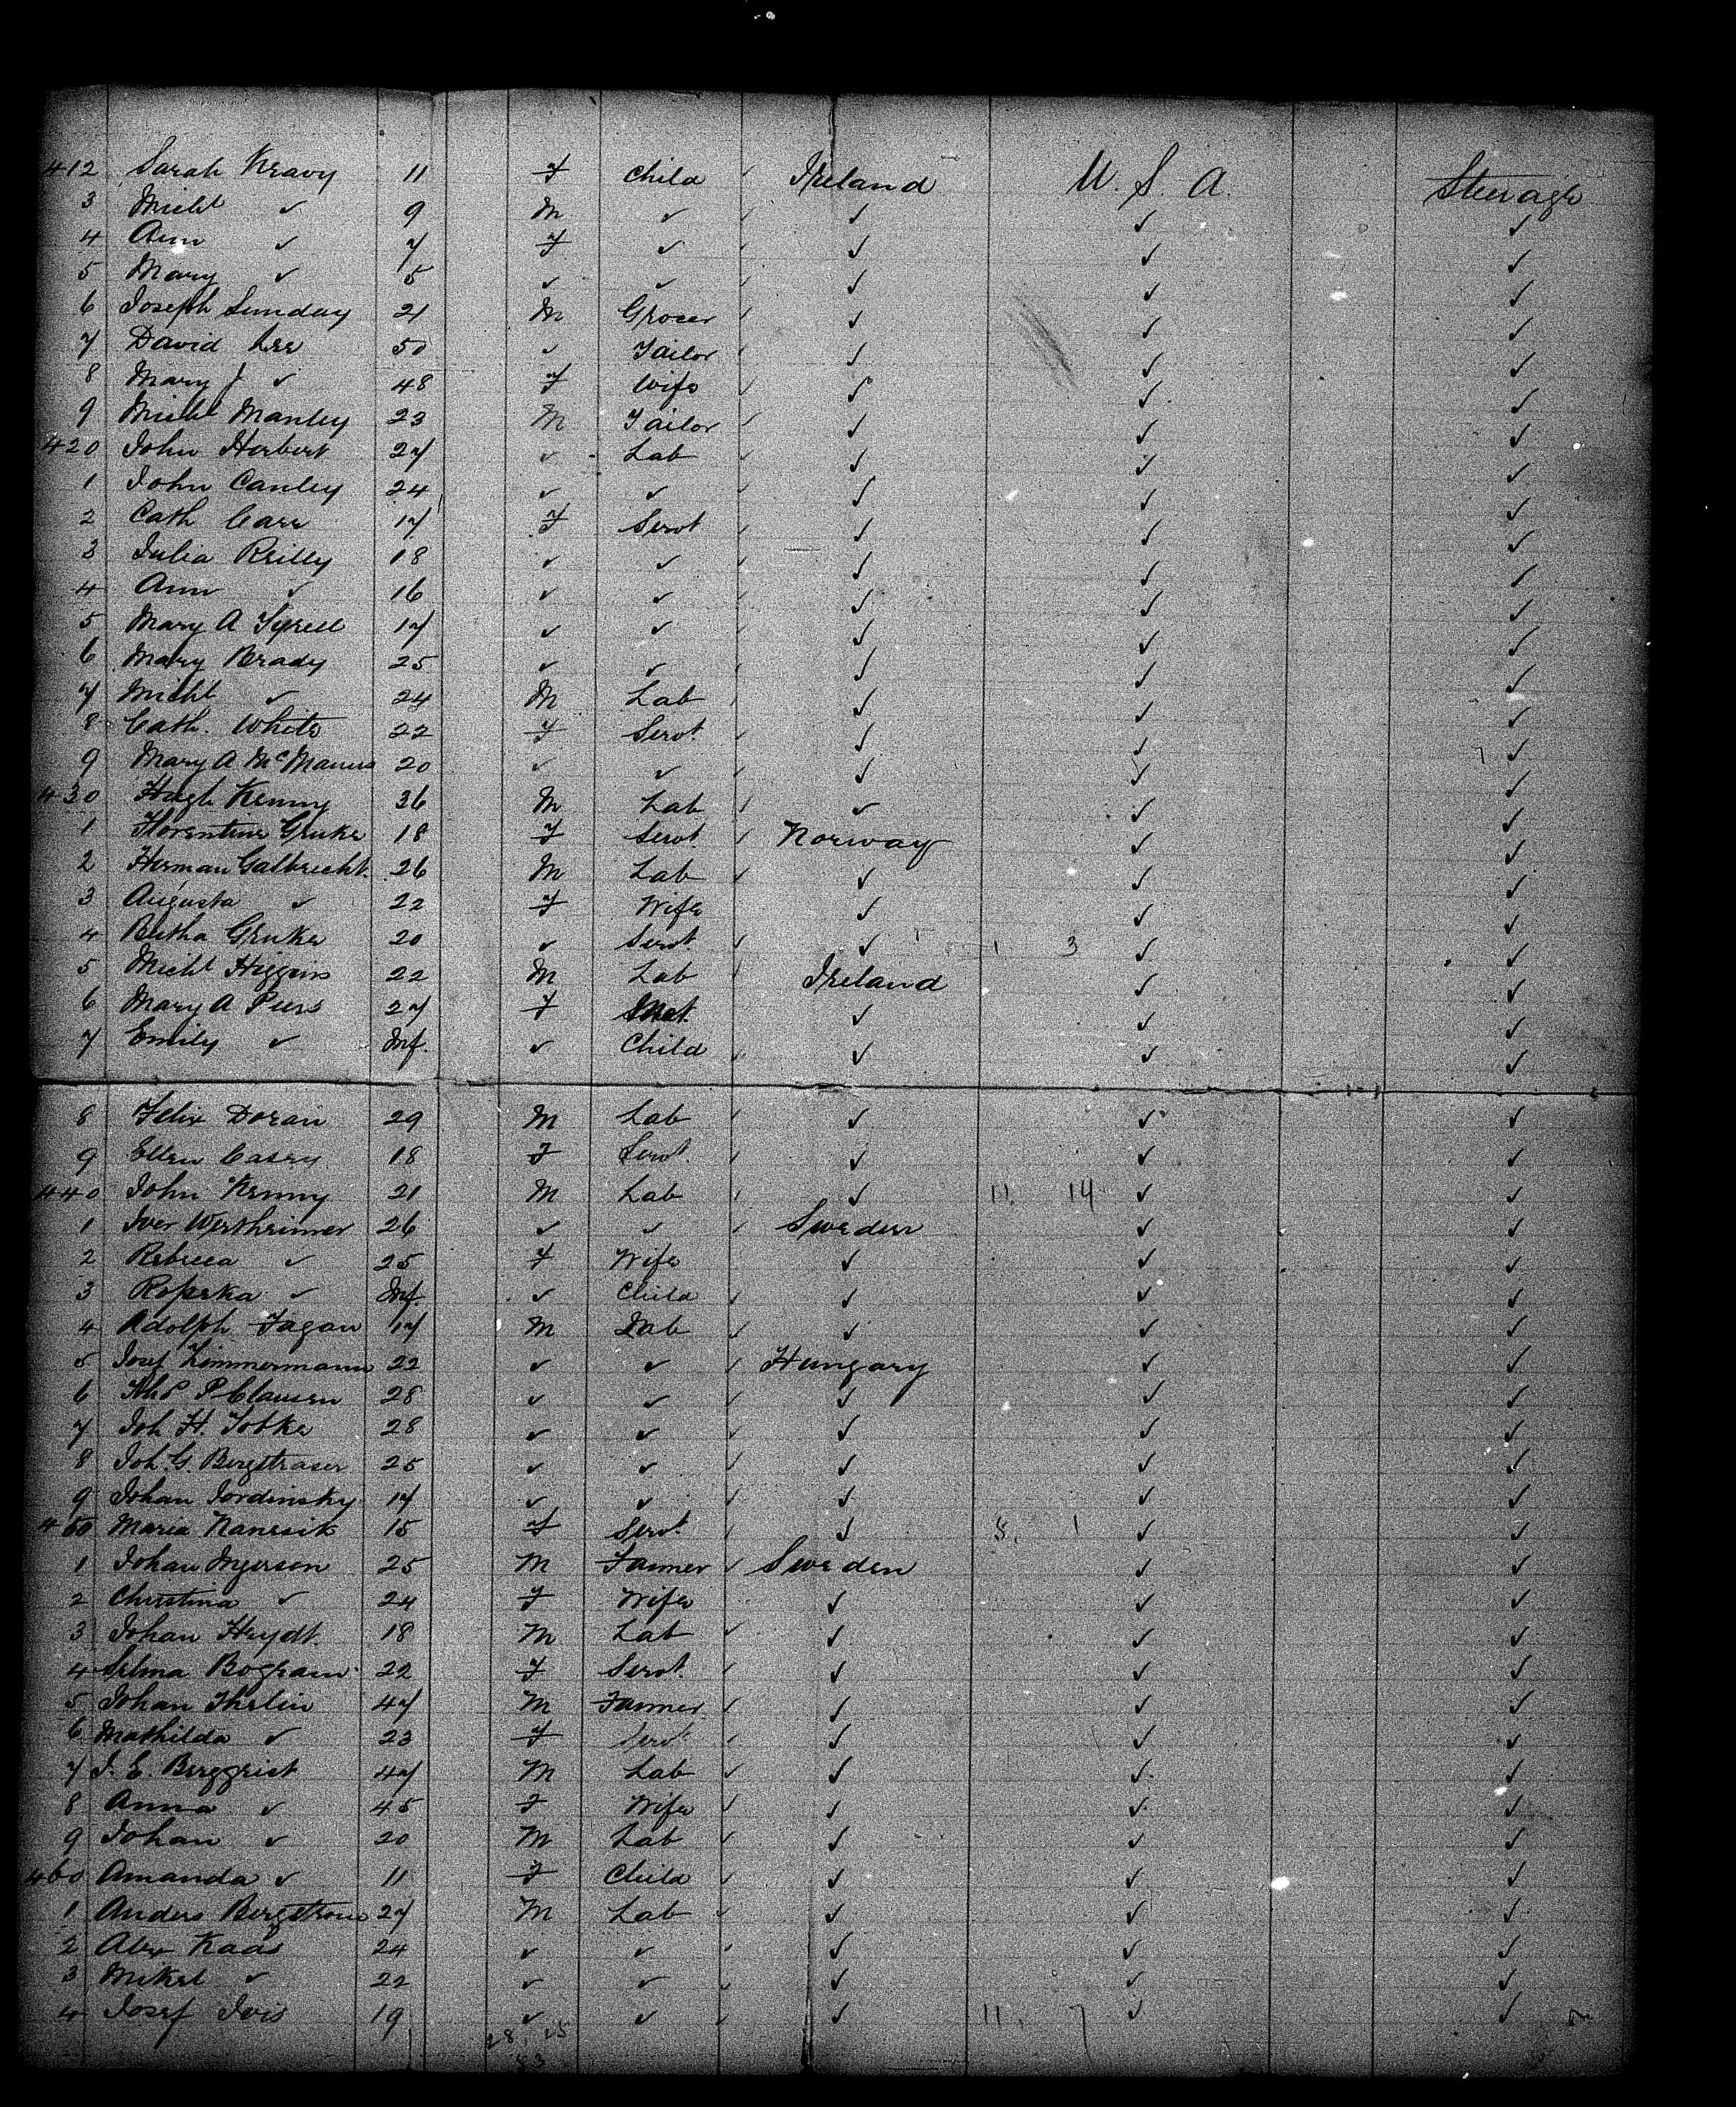 412 Sarah Keavy 11 F Child ✓ Ireland U. S. A. Steerage
3 Michl ✓ 9 M ✓ ✓ ✓ ✓ ✓
4 Ann ✓ 7 F ✓ ✓ ✓ ✓ ✓
5 Mary ✓ 5 ✓ ✓ ✓ ✓ ✓ ✓
6 Joseph Sunday 21 M Grocer ✓ ✓ ✓ ✓
7 David Lee 50 ✓ Tailor ✓ ✓ ✓ ✓
8 Mary J ✓ 48 F Wife ✓ ✓ ✓ ✓
9 Michl Manley 23 M Tailor ✓ ✓ ✓ ✓
420 John Herbert 27 ✓ Lab ✓ ✓ ✓ ✓
1 John Canley 24 ✓ ✓ ✓ ✓ ✓ ✓
2 Cath Carr 17 F Servt ✓ ✓ ✓ ✓
3 Julia Reilly 18 ✓ ✓ ✓ ✓ ✓ ✓
4 Ann ✓ 16 ✓ ✓ ✓ ✓ ✓ ✓
5 Mary A Tyrell 17 ✓ ✓ ✓ ✓ ✓ ✓
6 Mary Brady 25 ✓ ✓ ✓ ✓ ✓ ✓
7 Michl ✓ 24 M Lab ✓ ✓ ✓ ✓
8 Cath. White 22 F Servt. ✓ ✓ ✓ ✓
9 Mary A McManus 20 ✓ ✓ ✓ ✓ ✓ ✓
430 Hugh Kenny 36 M Lab ✓ ✓ ✓ ✓
1 Florentine Gruke 18 F Servt. ✓ Norway ✓ ✓
2 Herman Galbrecht. 26 M Lab ✓ ✓ ✓ ✓
3 Augusta ✓ 22 F Wife ✓ ✓ ✓
4 Betha Gruke 20 ✓ Servt. ✓ ✓ 1 3 ✓ ✓
5 Michl Higgins 22 M Lab ✓ Ireland ✓ ✓
6 Mary A Piers 27 F ✓ ✓ ✓
7 Emily ✓ Inf. ✓ Child ✓ ✓ ✓ ✓
8 Felix Doran 29 M Lab ✓ ✓ ✓ ✓
9 Ellen Casey 18 F Servt. ✓ ✓ ✓ ✓
440 John Kenny 21 M Lab ✓ ✓ 11. 14 ✓ ✓
1 Iver Wertheimer 26 ✓ ✓ ✓ Sweden ✓ ✓
2 Rebecca ✓ 25 F Wife ✓ ✓ ✓
3 ✓ Inf. ✓ Child ✓ ✓ ✓ ✓
4 Adolph Fagan 17 M Lab ✓ ✓ ✓ ✓
5 Josef Zimmermann 22 ✓ ✓ ✓ Hungary ✓ ✓
6 P Clausen 28 ✓ ✓ ✓ ✓ ✓ ✓
7 Joh H. Tobke 28 ✓ ✓ ✓ ✓ ✓ ✓
8 Joh. G. Bergstraser 25 ✓ ✓ ✓ ✓ ✓ ✓
9 Johan Jordinsky 17 ✓ ✓ ✓ ✓ ✓ ✓
450 Maria Nanesik 15 F Servt. ✓ ✓ 8. 1 ✓ ✓
1 Johan Ingerson 25 M Farmer ✓ Sweden ✓ ✓
2 Christina ✓ 24 F Wife ✓ ✓ ✓
3 Johan Heydt. 18 M Lab ✓ ✓ ✓ ✓
4 Selma Bogram 22 F Servt. ✓ ✓ ✓ ✓
5 Johan Therlin 47 M Farmer ✓ ✓ ✓ ✓
6 Mathilda ✓ 23 F Servt. ✓ ✓ ✓ ✓
7 J. E. Bergqrist 47 M Lab ✓ ✓ ✓ ✓
8 Anna ✓ 45 F Wife ✓ ✓ ✓ ✓
9 Johan ✓ 20 M Lab ✓ ✓ ✓ ✓
460 Amanda ✓ 11 F Child ✓ ✓ ✓ ✓
1 Anders Bergstrom 27 M Lab ✓ ✓ ✓ ✓
2 Alex Kaas 24 ✓ ✓ ✓ ✓ ✓ ✓
3 Mikel ✓ 22 ✓ ✓ ✓ ✓ ✓ ✓
4 Josef Ivis 19 ✓ ✓ ✓ ✓ 11. 7 ✓ ✓
28. 25
53